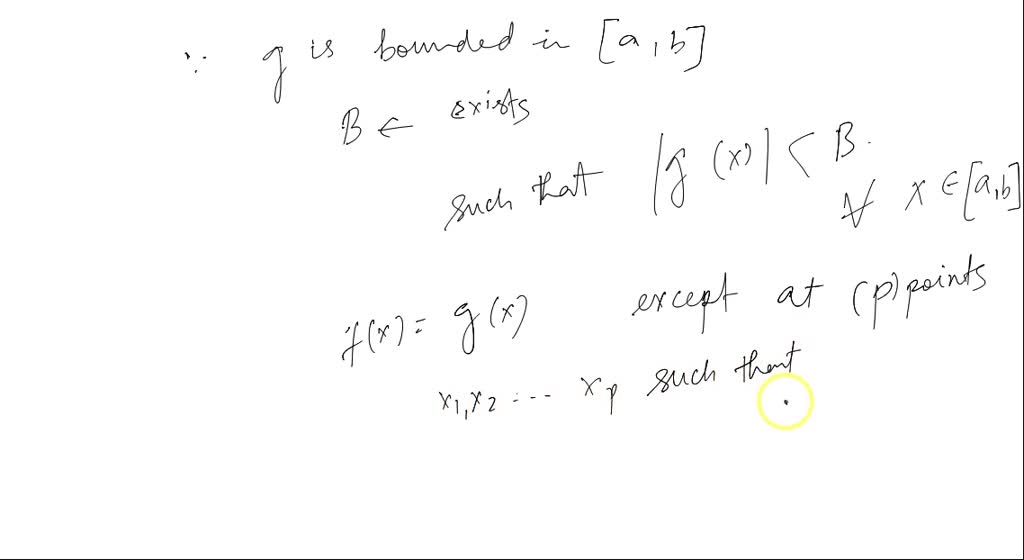 ∵ g is bounded in [a,b]
B ← exists
such that |g(x)| < B.
∀ x ∈ [a,b]
f(x) = g(x) except at (p) points
x1, x2 ... xp such that